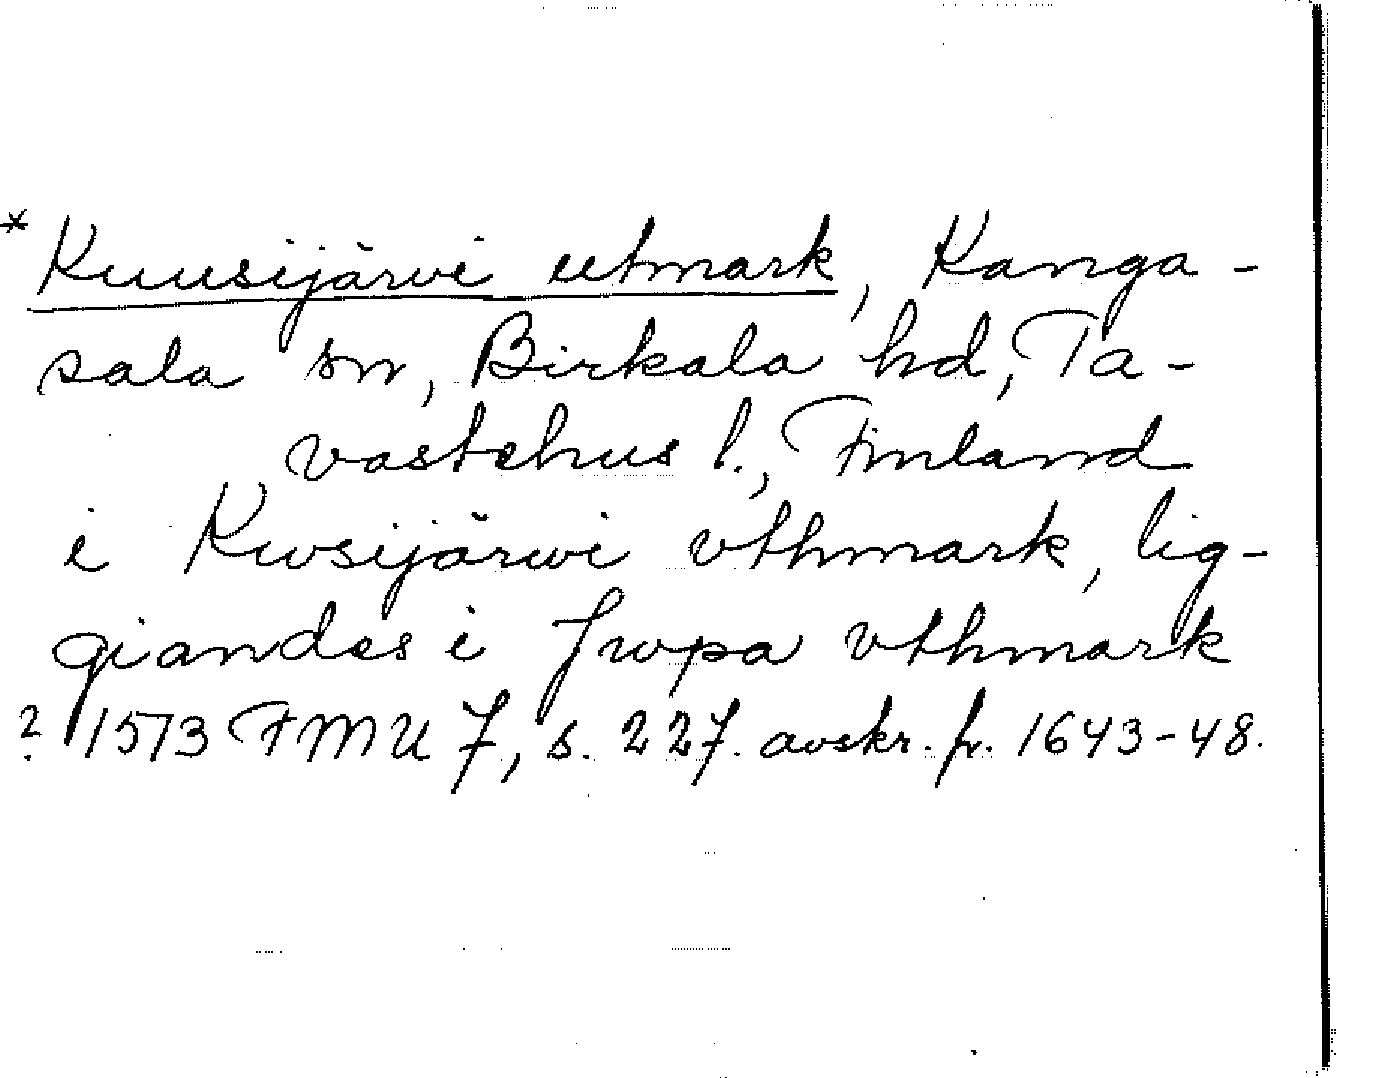 * Kuusijärvi utmark, Kanga-
sala sn, Birkala hd, Ta-
vastehus l., Finland
i Kwsijärwi vthmark, lig-
giandes i Jwpa vthmark
? 1573 FMU 7, s. 227. avskr. fr. 1643-48.